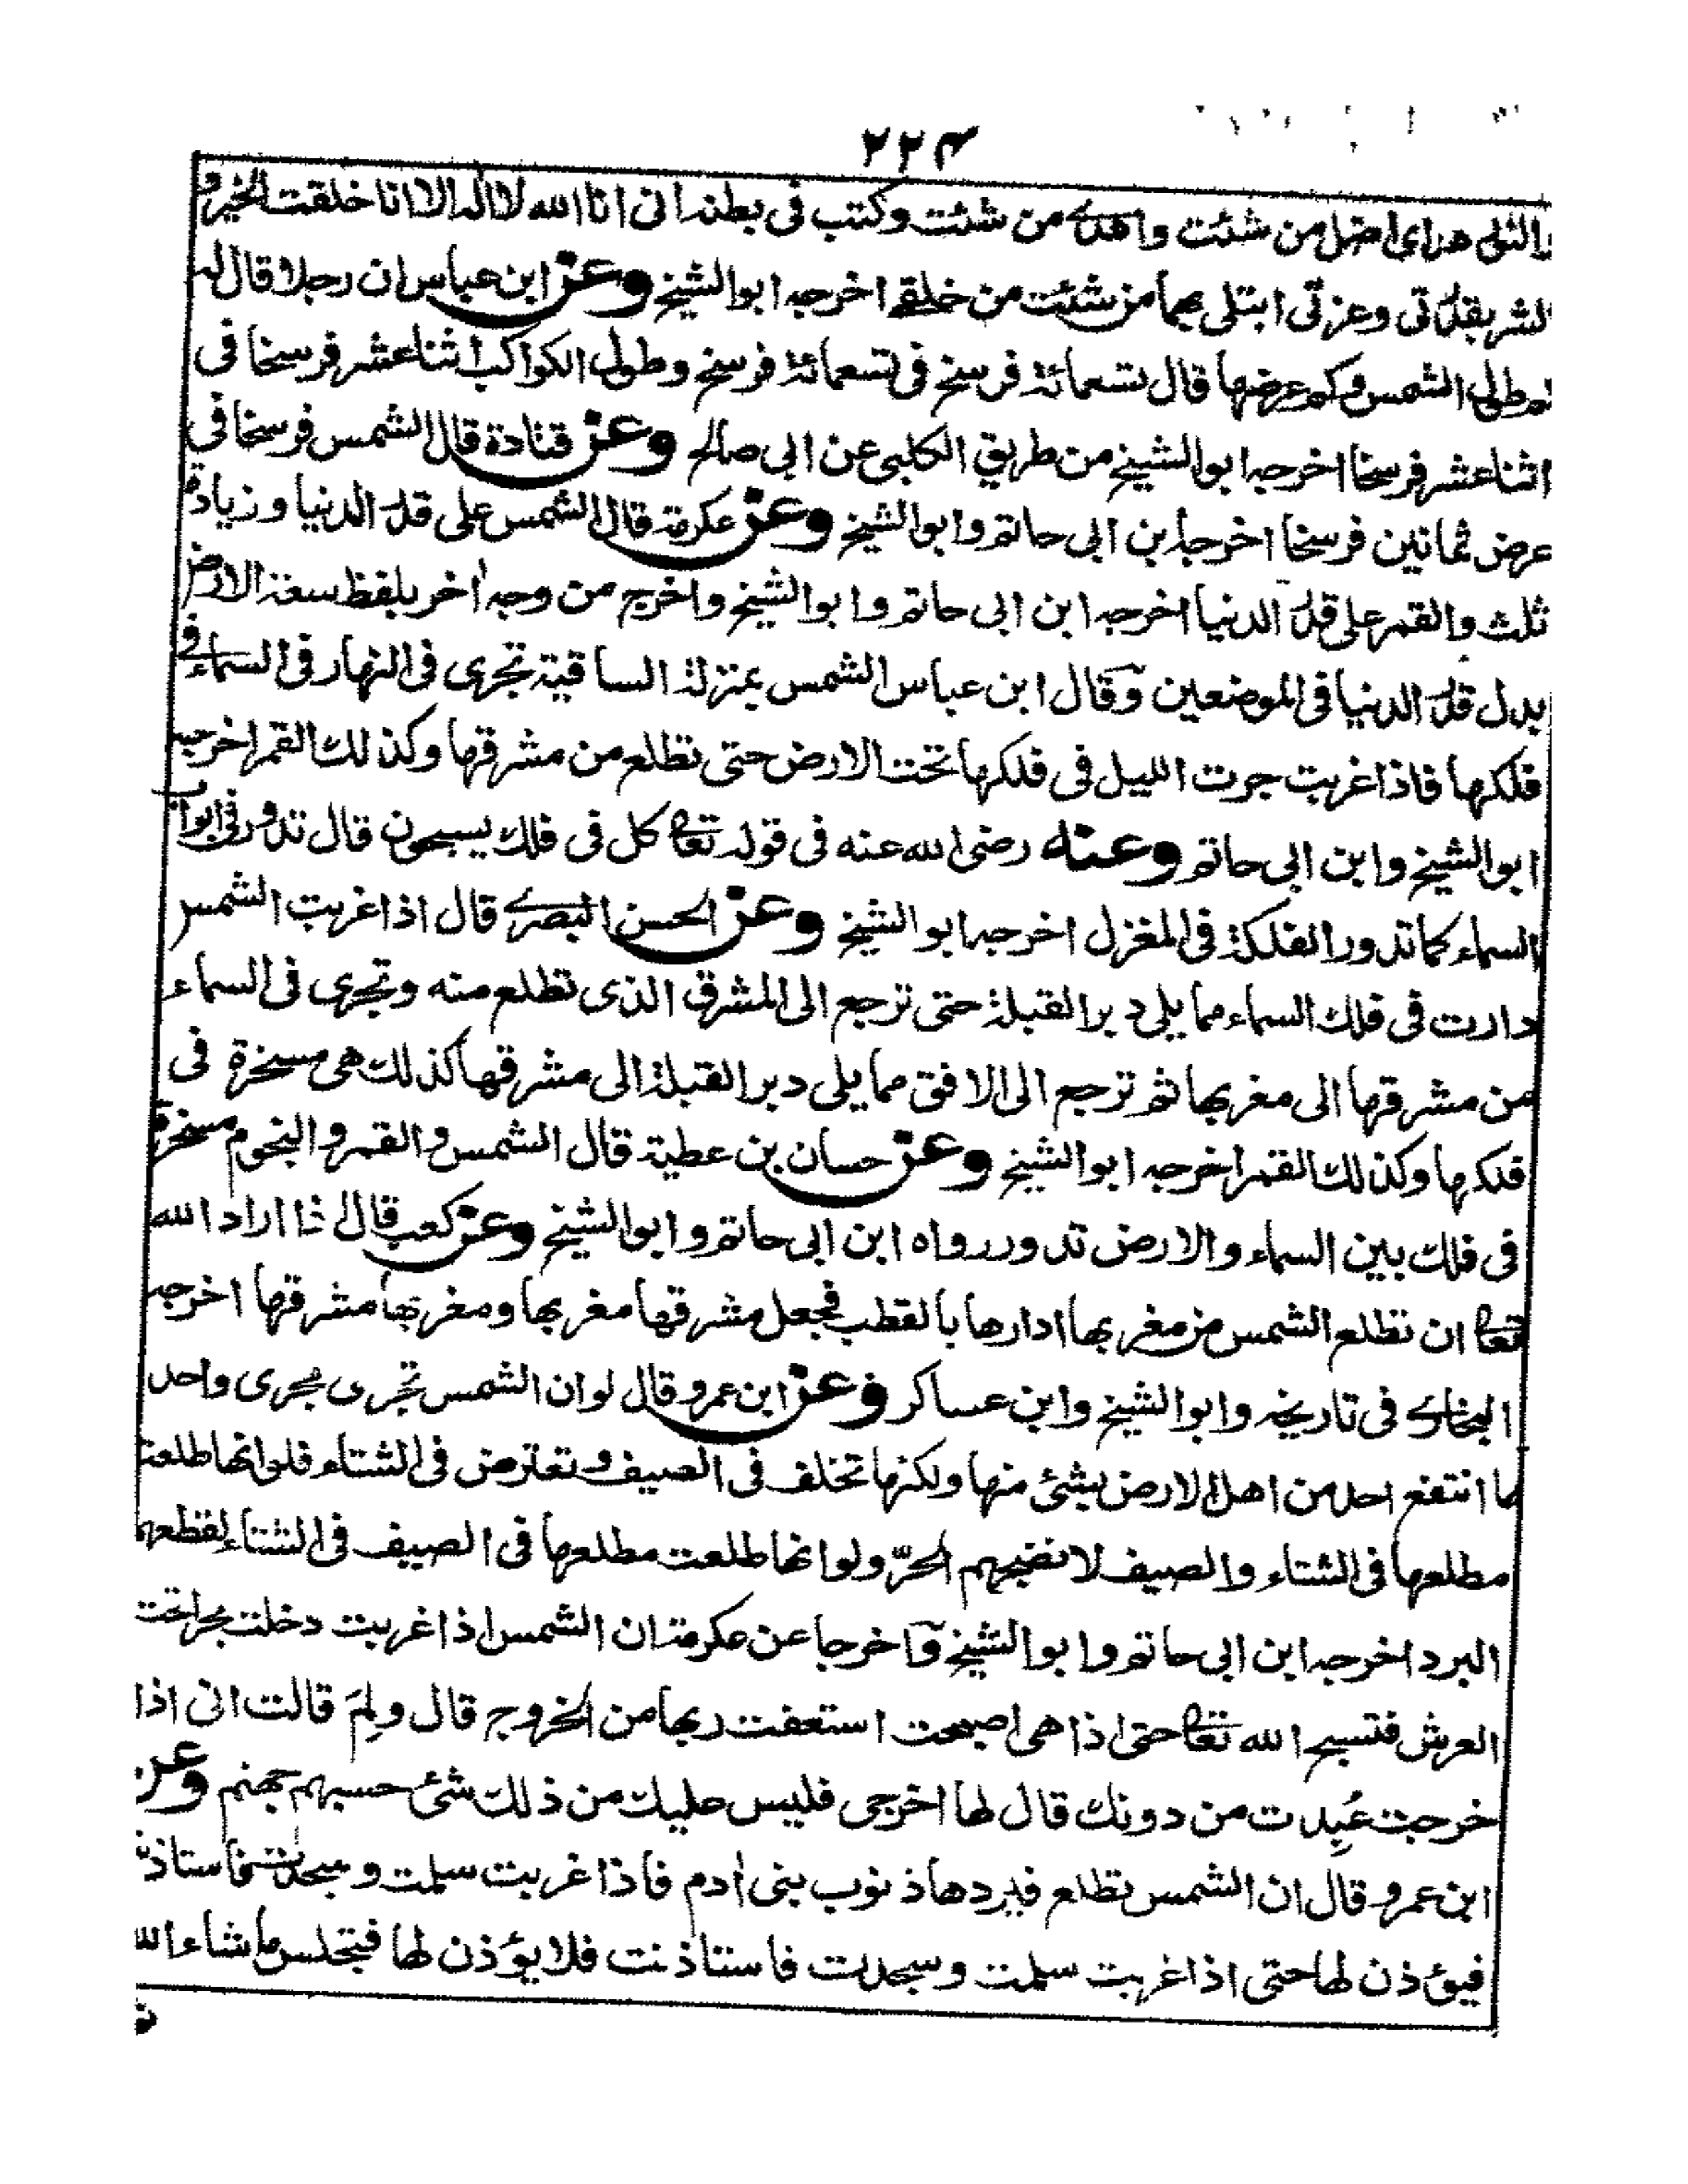 ٢٢٤
اضل من شئت واهدى من شئت وكتب فى بطنه انى انا الله لا اله الا انا خلقت الخير و
الشر بقدرتى وعزتى ابتلى بهما من شئت من خلقى اخرجه ابو الشيخ وعن ابن عباس ان رجلا قال له
كم طول الشمس وكم عرضها قال تسعمائة فرسخ فى تسعمائة فرسخ وطول الكواكب اثنا عشر فرسخا فى
اثنا عشر فرسخا اخرجه ابو الشيخ من طريق الكلبى عن ابى صالح وعن قتادة قال الشمس فرسخا فى
عرض ثمانين فرسخا اخرجه ابن ابى حاتم وابو الشيخ وعن عكرمة قال الشمس على قدر الدنيا وزيادة
ثلث والقمر على قدر الدنيا اخرجه ابن ابى حاتم وابو الشيخ واخرج من وجه اٰخر بلفظ سعة الارض
بدل قدر الدنيا فى الموضعين وقال ابن عباس الشمس بمنزلة الساقية تجرى فى النهار فى السماء فى
فلكها فاذا غربت جرت الليل فى فلكها تحت الارض حتى تطلع من مشرقها وكذلك القمر اخرجه
ابو الشيخ وابن ابى حاتم وعنه رضى الله عنه فى قوله تعا كل فى فلك يسبحون قال تدور فى ابواب
السماء كما تدور الفلكة فى المغزل اخرجه ابو الشيخ وعن الحسن البصرى قال اذا غربت الشمس
دارت فى فلك السماء مما يلى دبر القبلة حتى ترجع الى المشرق الذى تطلع منه وتجرى فى السماء
من مشرقها الى مغربها ثم ترجع الى الافق مما يلى دبر القبلة الى مشرقها كذلك هى مسخرة فى
فلكها وكذلك القمر اخرجه ابو الشيخ وعن حسان بن عطية قال الشمس والقمر والنجوم مسخرة
فى فلك بين السماء والارض تدور رواه ابن ابى حاتم وابو الشيخ وعن كعب قال اذا اراد الله
تعا ان تطلع الشمس من مغربها ادارها بالقطب فجعل مشرقها مغربها ومغربها مشرقها اخرجه
البخارى فى تاريخه وابو الشيخ وابن عساكر وعن ابن عمرو قال لو ان الشمس تجرى مجرى واحد
ما انتفع احد من اهل الارض بشئ منها ولكنها تخلف فى الصيف وتعترض فى الشتاء فلو انها طلعت
مطلعها فى الشتاء والصيف لانضجهم الحرّ ولو انها طلعت مطلعها فى الصيف فى الشتاء لقطعهم
البرد اخرجه ابن ابى حاتم وابو الشيخ وٓاخرجا عن عكرمة ان الشمس اذا غربت دخلت بحرا تحت
العرش فتسبح الله تعا حتى اذا هى اصبحت استعفت ربها من الخروج قال ولِمَ قالت انى اذا
خرجت عُبِدت من دونك قال لها اخرجى فليس عليك من ذلك شئ حسبهم جهنم وعن
ابن عمرو قال ان الشمس تطلع فيردها ذنوب بنى اٰدم فاذا غربت سلمت وسجدت فاستاذنت
فيؤذن لها حتى اذا غربت سلمت وسجدت فاستاذنت فلا يؤذن لها فتحبس ما شاء الله